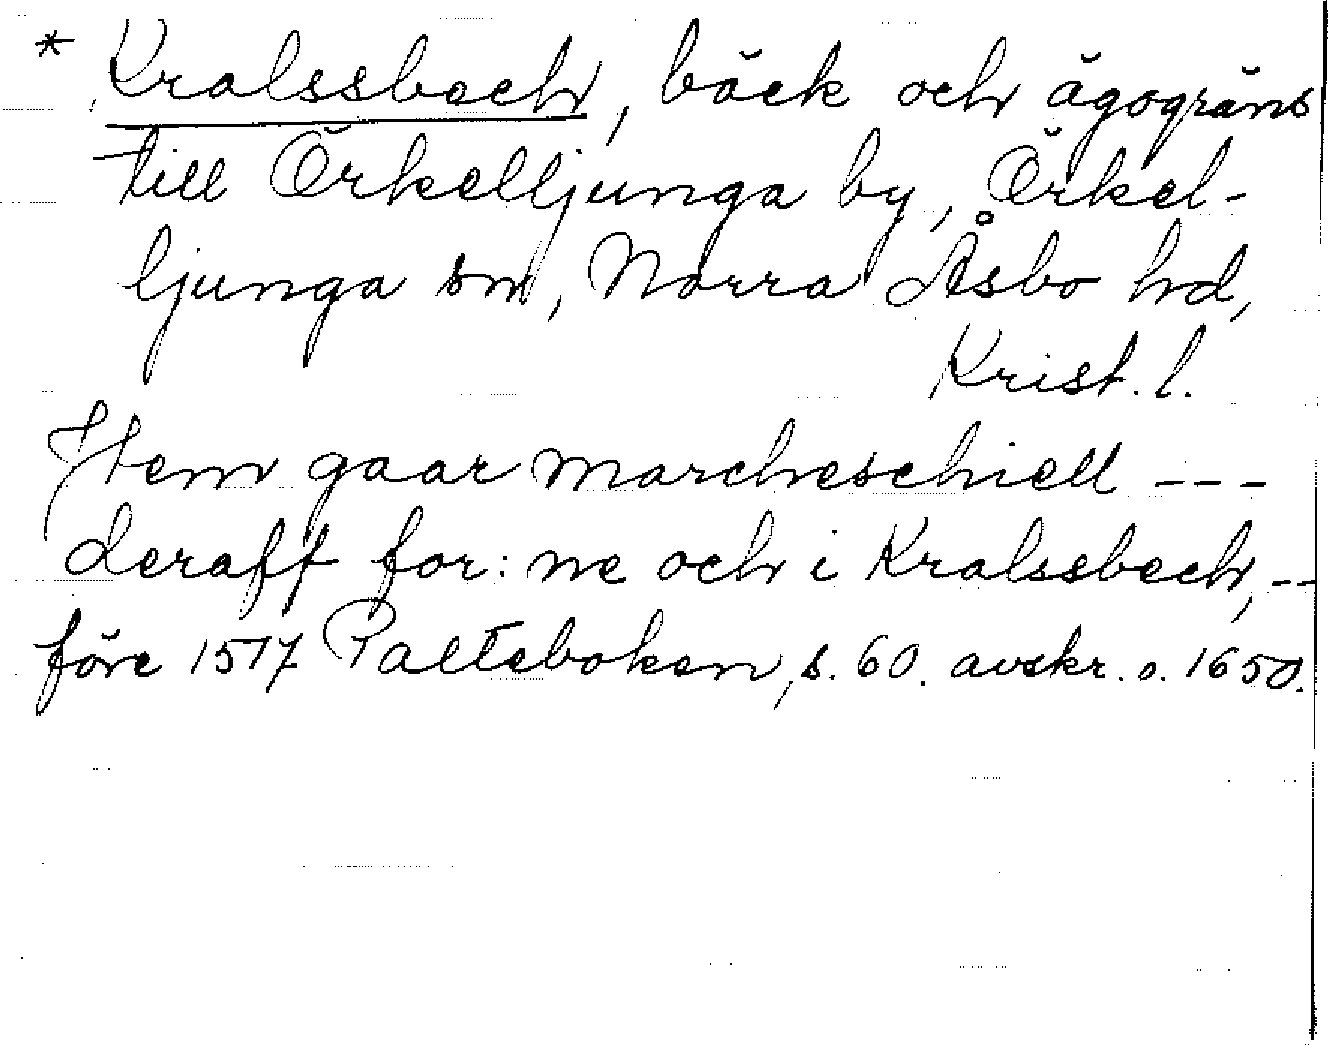 * Kralssbech, bäck och ägogräns
till Örkelljunga by, Örkel-
ljunga sn, Norra Åsbo hd,
Krist. l.
Item gaar marcheschiell ---
deraff for: ne och i Kralssbech, --
före 1517 Palteboken, s. 60. avskr. o. 1650.